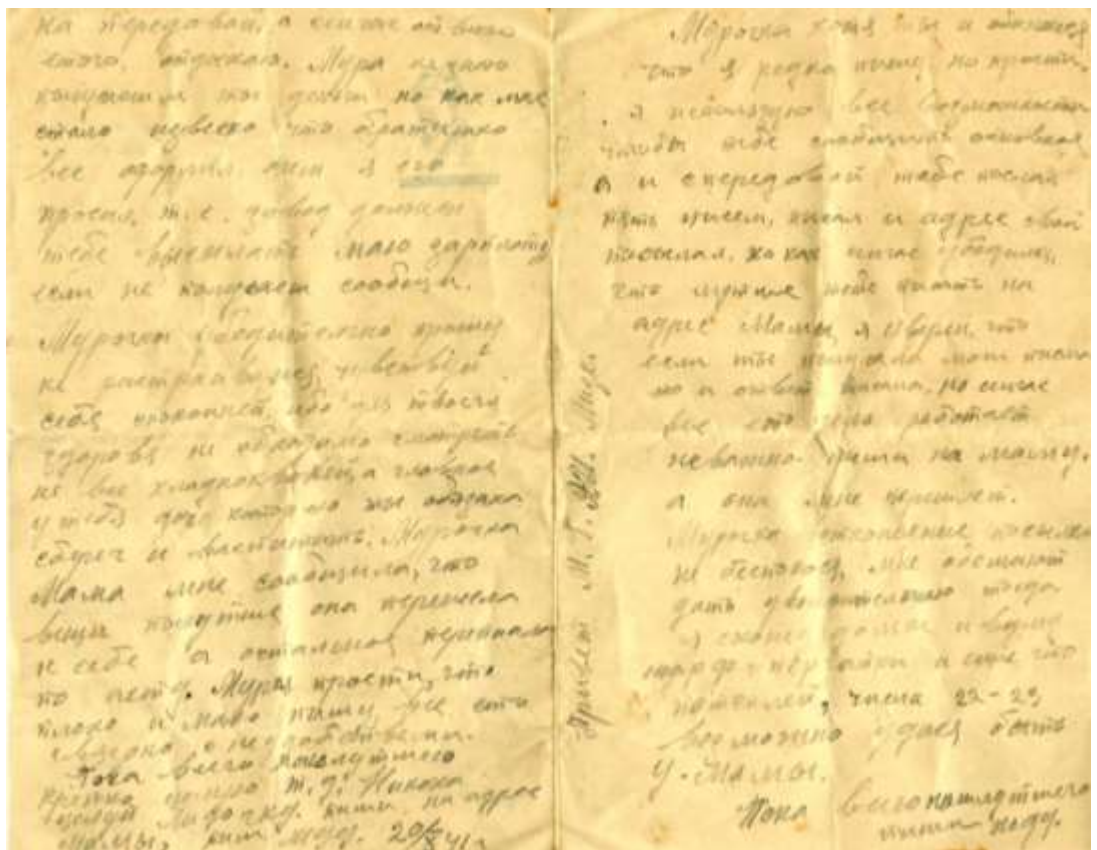 на передовой, а сейчас от всего
этого, отдыхаю. Мура не знаю
получаеш ли ты деньги но как мне
стало известно что братишка
все оформил, как я его
просил, т.е. завод должен
тебе высылать мою зарплату
если не получаеш сообщи.
Мурочка убедительно прошу
не расстраивайся, чувствуй
себя спокойней, ибо из твоего
здоровя не обходимо смотреть
на все хладнокровней, а главное
у тебя дочь которую ты обязана
сберечь и воспитать. Мурочка
Мама мне сообщила, что
вещи получшие она перенесла
к себе а остальное переписала
по акту. Мура прости, что
плохо и мало пишу
Пока всего наилутшего
крепко целую т.д. Никола
целуй Лидочку. пиши на адрес
Мамы, 20/X 41 г
Привет М. Г. Лиде.
Мурочка хотя ты и обижаешся
что я редко пишу, но прости,
я использую все возможности
чтобы тебе сообщить
и с передовой тебе послал
пять писем, писал и адрес свой
посылал, но как сейчас убедился,
что лутше тебе писать на
адрес Мамы, я уверен, что
если ты получала мои письма
то и ответ писала, но сейчас
все это дело работает
неважно. пиши на маму,
а она мне перешлет.
Мурочка относительно посылки
не беспокойся, мне обещают
дать
я схожу домой и возьму
и еще что
потеплей, числа 22-23
возможно удася быть
у Мамы.
Пока всего наилутшего
пиши